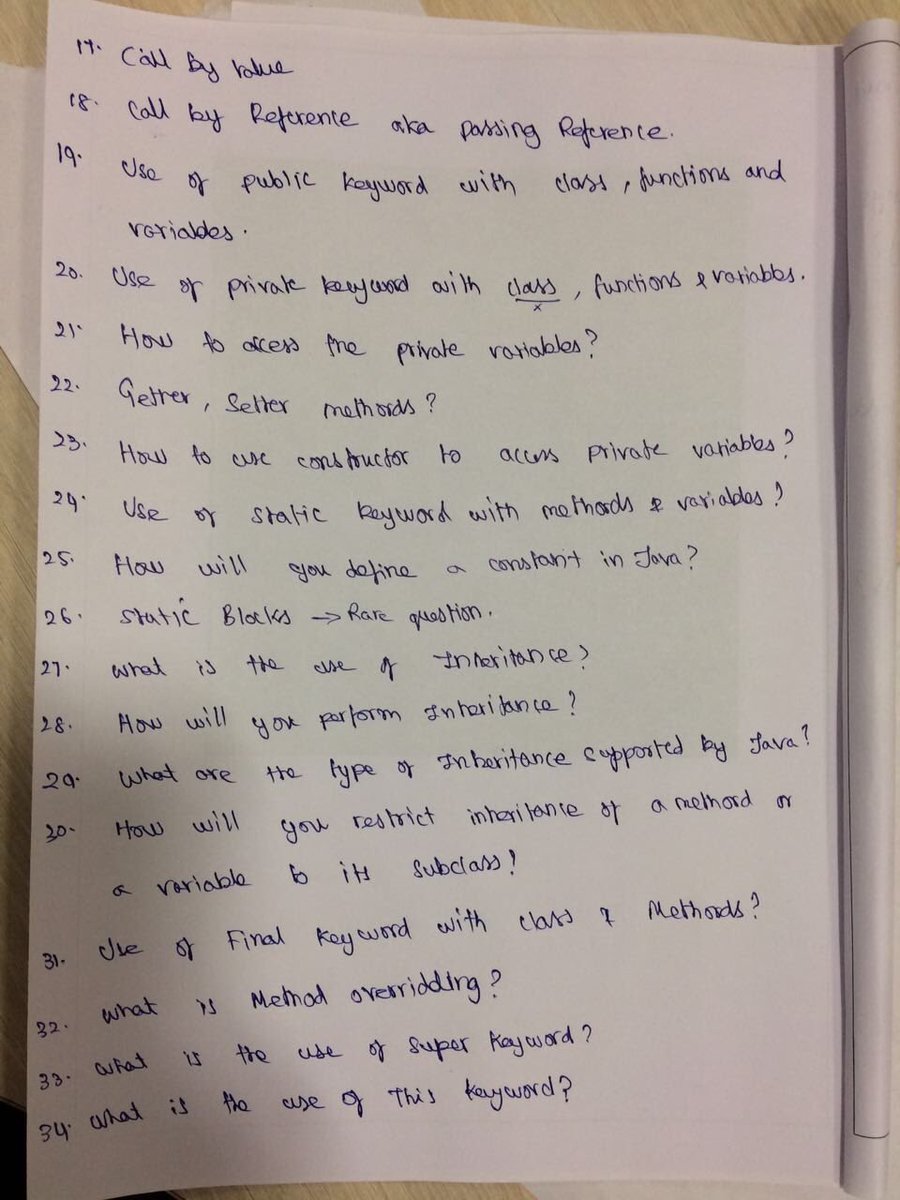 17. Call By Value
18. Call by Reference aka passing Reference.
19. Use of public keyword with class, functions and
variables.
20. Use of private keyword with class, functions & variables.
x
21. How to access the private variables?
22. Getter, Setter methods?
23. How to use constructor to access private variables?
24. Use of static keyword with methods & variables?
25. How will you define a constant in Java?
26. Static Blocks → Rare question.
27. what is the use of Inheritance?
28. How will you perform Inheritance?
29. What are the type of Inheritance supported by Java?
30. How will you restrict inheritance of a method or
a variable to its subclass?
31. Use of Final keyword with class & Methods?
32. what is Method overridding?
33. what is the use of super keyword?
34. what is the use of This keyword?